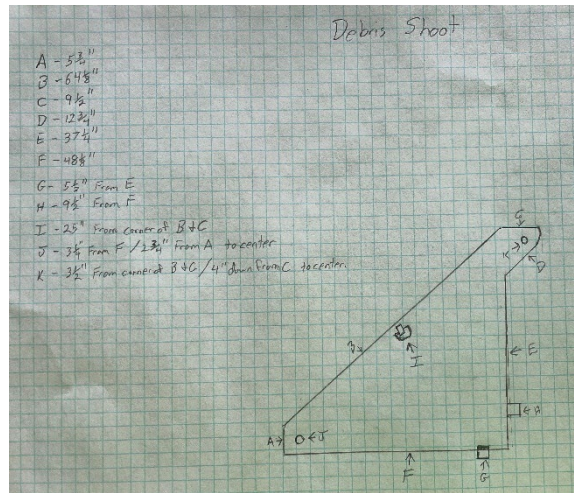 Debris Shoot
A - 5¾"
B - 64⅛"
C - 9½"
D - 12¾"
E - 37¼"
F - 48⅛"
G - 5½" From E
H - 9½" From F
I - 25" From corner of B & C
J - 3¼ From F / 2¾" From A to center
K - 3½" From corner of B & C / 4" down From C to center.
C
K
D
B
I
E
H
A
J
F
G